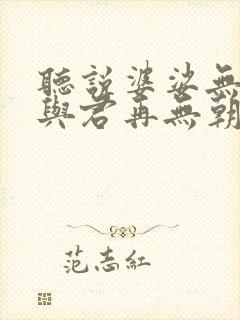 聽説婆娑無
與君再無朝
范志紅